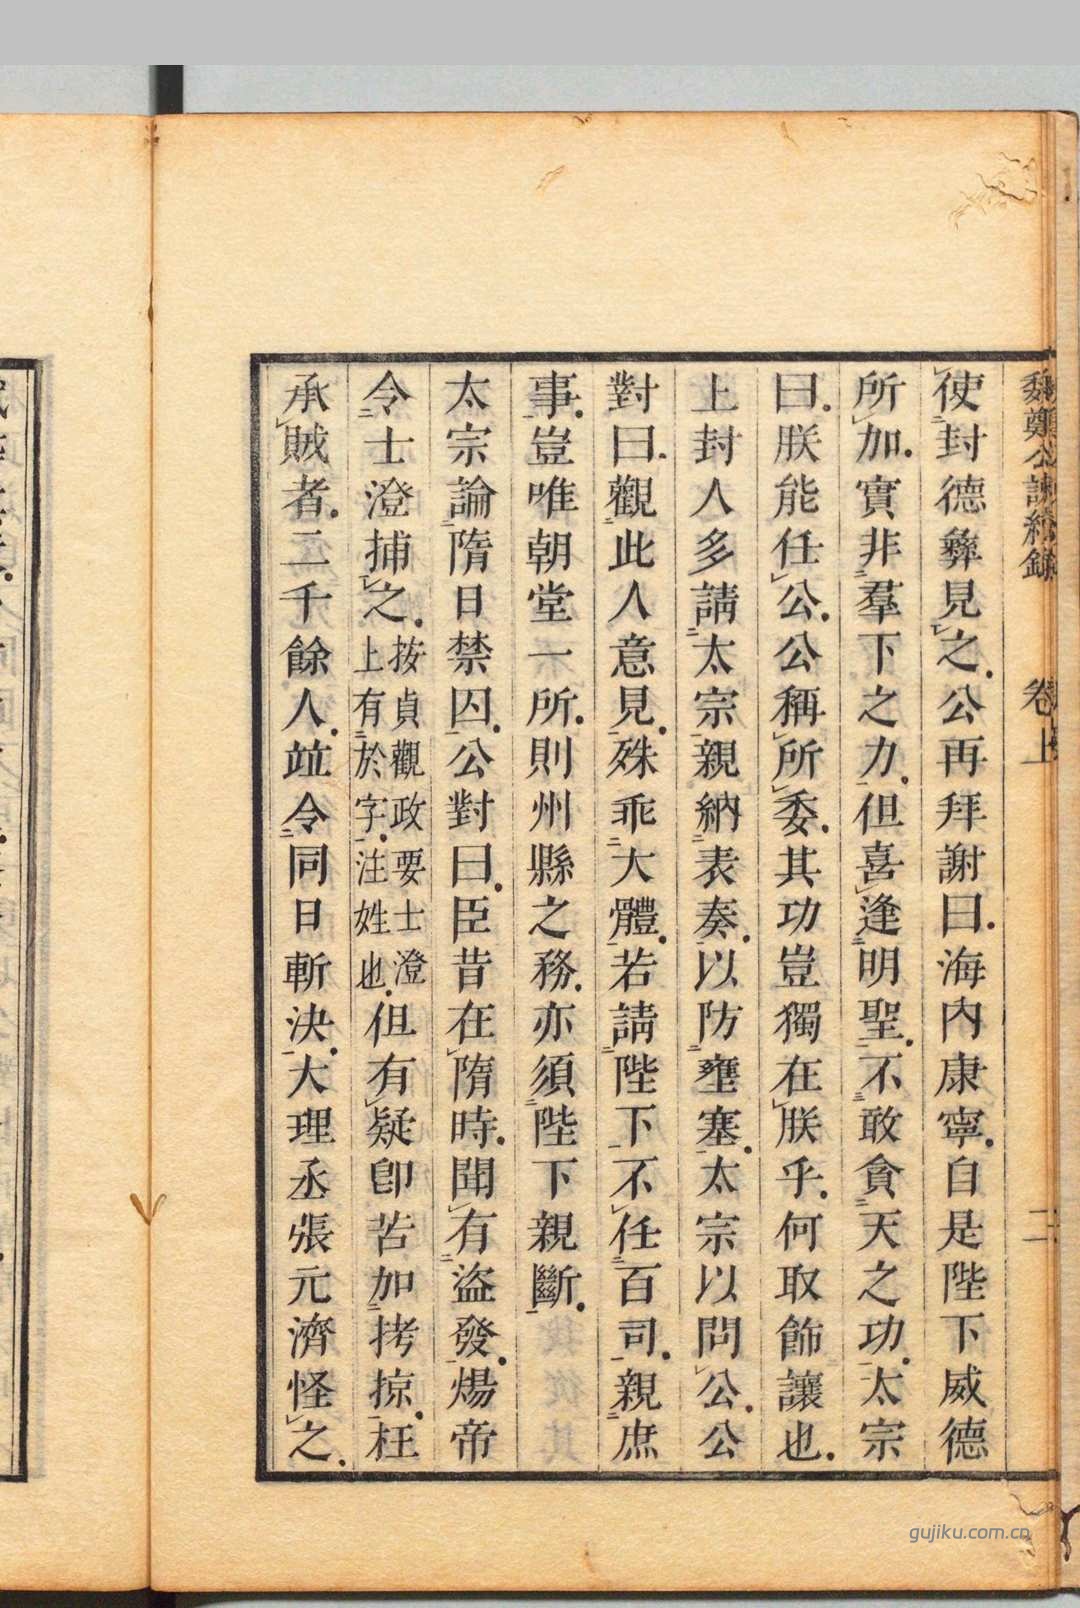 魏鄭公諫續錄 卷上 二
使封德彝見之公再拜謝曰海内康寧自是陛下威德
所加實非羣下之力但喜逢明聖不敢貪天之功太宗
曰朕能任公公稱所委其功豈獨在朕乎何取飾讓也
上封人多請太宗親納表奏以防壅塞太宗以問公公
對曰觀此人意見殊乖大體若請陛下不任百司親庶
事豈唯朝堂一所則州縣之務亦須陛下親斷
太宗論隋日禁囚公對曰臣昔在隋時聞有盜發煬帝
令士澄捕之按貞觀政要士澄上有於字注姓也但有疑卽苦加拷掠枉
承賊者二千餘人竝令同日斬決大理丞張元濟怪之
gujiku.com.cn